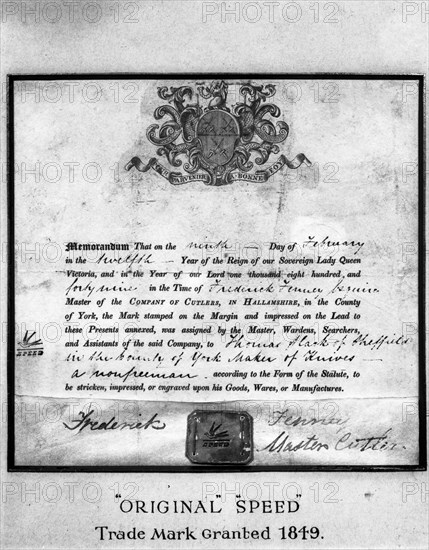 POUR Y PARVENIR A BONNE FOY
Memorandum That on the ninth — Day of February
in the twelfth — Year of the Reign of our Sovereign Lady Queen
Victoria, and in the Year of our Lord one thousand eight hundred, and
forty nine in the Time of Frederick Fenney
Master of the COMPANY OF CUTLERS, IN HALLAMSHIRE, in the County
of York, the Mark stamped on the Margin and impressed on the Lead to
these Presents annexed, was assigned by the Master, Wardens, Searchers,
and Assistants of the said Company, to Thomas Slack of Sheffield
in the County of York Maker of Knives —
a nonfreeman — according to the Form of the Statute, to
be stricken, impressed, or engraved upon his Goods, Wares, or Manufactures.
SPEED
Frederick Fenney
Master Cutler
SPEED
"ORIGINAL" "SPEED"
Trade Mark Granted 1849.
PHOTO12